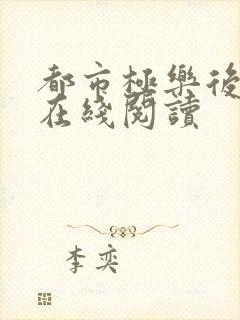 都市極樂後
在綫閱讀
李奕